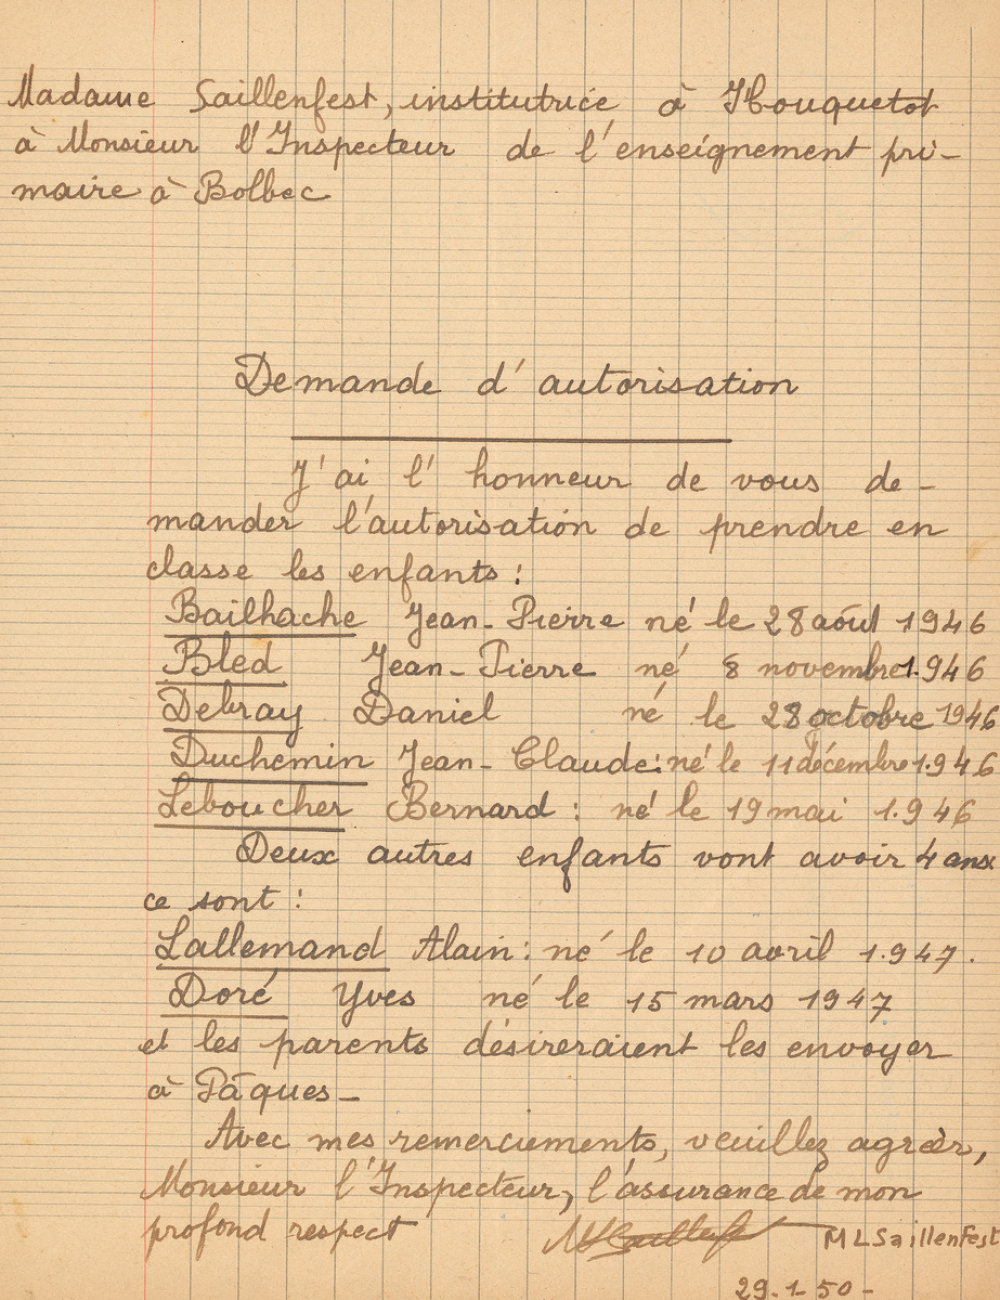 Madame Saillenfest, institutrice à Houquetot
à Monsieur l'Inspecteur de l'enseignement pri-
maire à Bolbec
Demande d'autorisation
J'ai l'honneur de vous de-
mander l'autorisation de prendre en
classe les enfants :
Bailhache Jean-Pierre né le 28 août 1946
Bled Jean-Pierre né 8 novembre 1.946
Debray Daniel né le 28 octobre 1946
Duchemin Jean-Claude : né le 11 décembre 1.946
Leboucher Bernard : né le 19 mai 1.946
Deux autres enfants vont avoir 4 ans
ce sont :
Lallemand Alain : né le 10 avril 1.947.
Doré Yves né le 15 mars 1947
et les parents désireraient les envoyer
à Pâques-
Avec mes remerciements, veuillez agréer,
Monsieur l'Inspecteur, l'assurance de mon
profond respect MLSaillenfest MLSaillenFest
29-1-50-